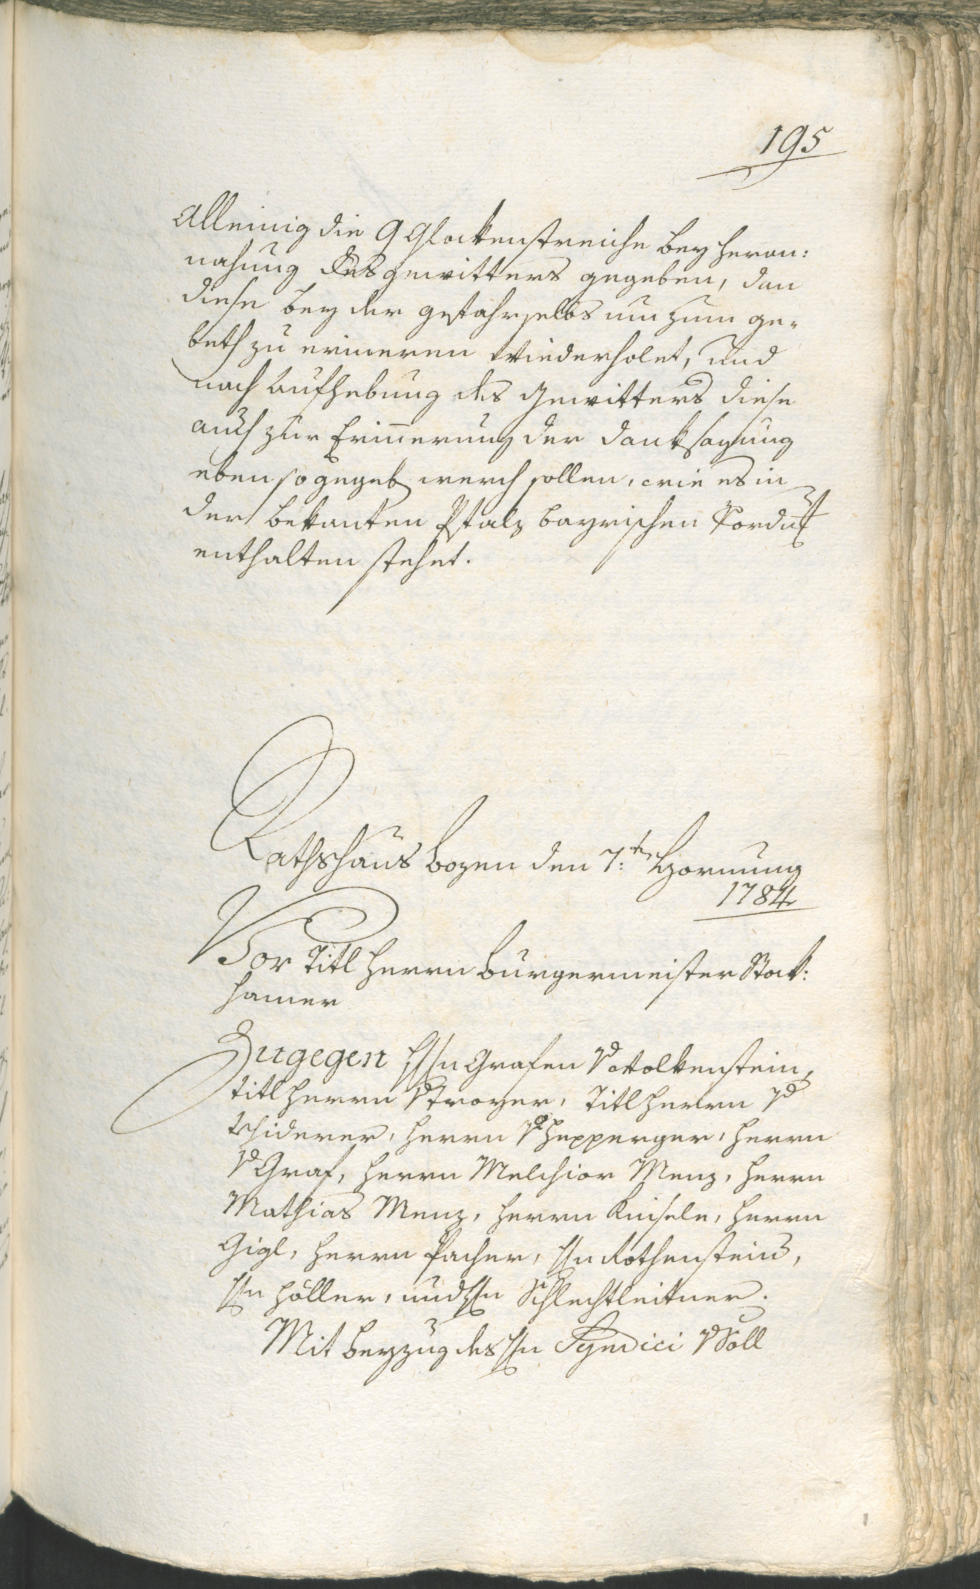 195
Alleinig die 9 Glockenstreiche bey heran:
nahung des gewitters gegeben, dan
diese bey der gefahr selbs um zum ge-
beth zu erineren wiederholet, und
nach aufhebung des Gewitters diese
auch zur Erinnerung der danksagung
eben so gegeb werden sollen, wie es in
der bekanten Pfalz bayrischen
enthalten stehet.
Rathshaus Bozen den 7:ten Hornung
1784
Vor Titl Herrn Burgermeister Stok:
hamer
Zugegen Hn Grafen v Wolkenstein,
Titl Herrn v Troyer, Titl Herrn v
Tschiderer, Herrn v Hepperger, Herrn
v Graf, Herrn Melchior Menz, Herrn
Mathias Menz, Herrn Knisele, Herrn
Gigl, Herrn Pacher, Hn Rothenstein,
Hn Höller, und Hn Schlechtleitner.
Mit beyzug des Hn Syndici v Söll